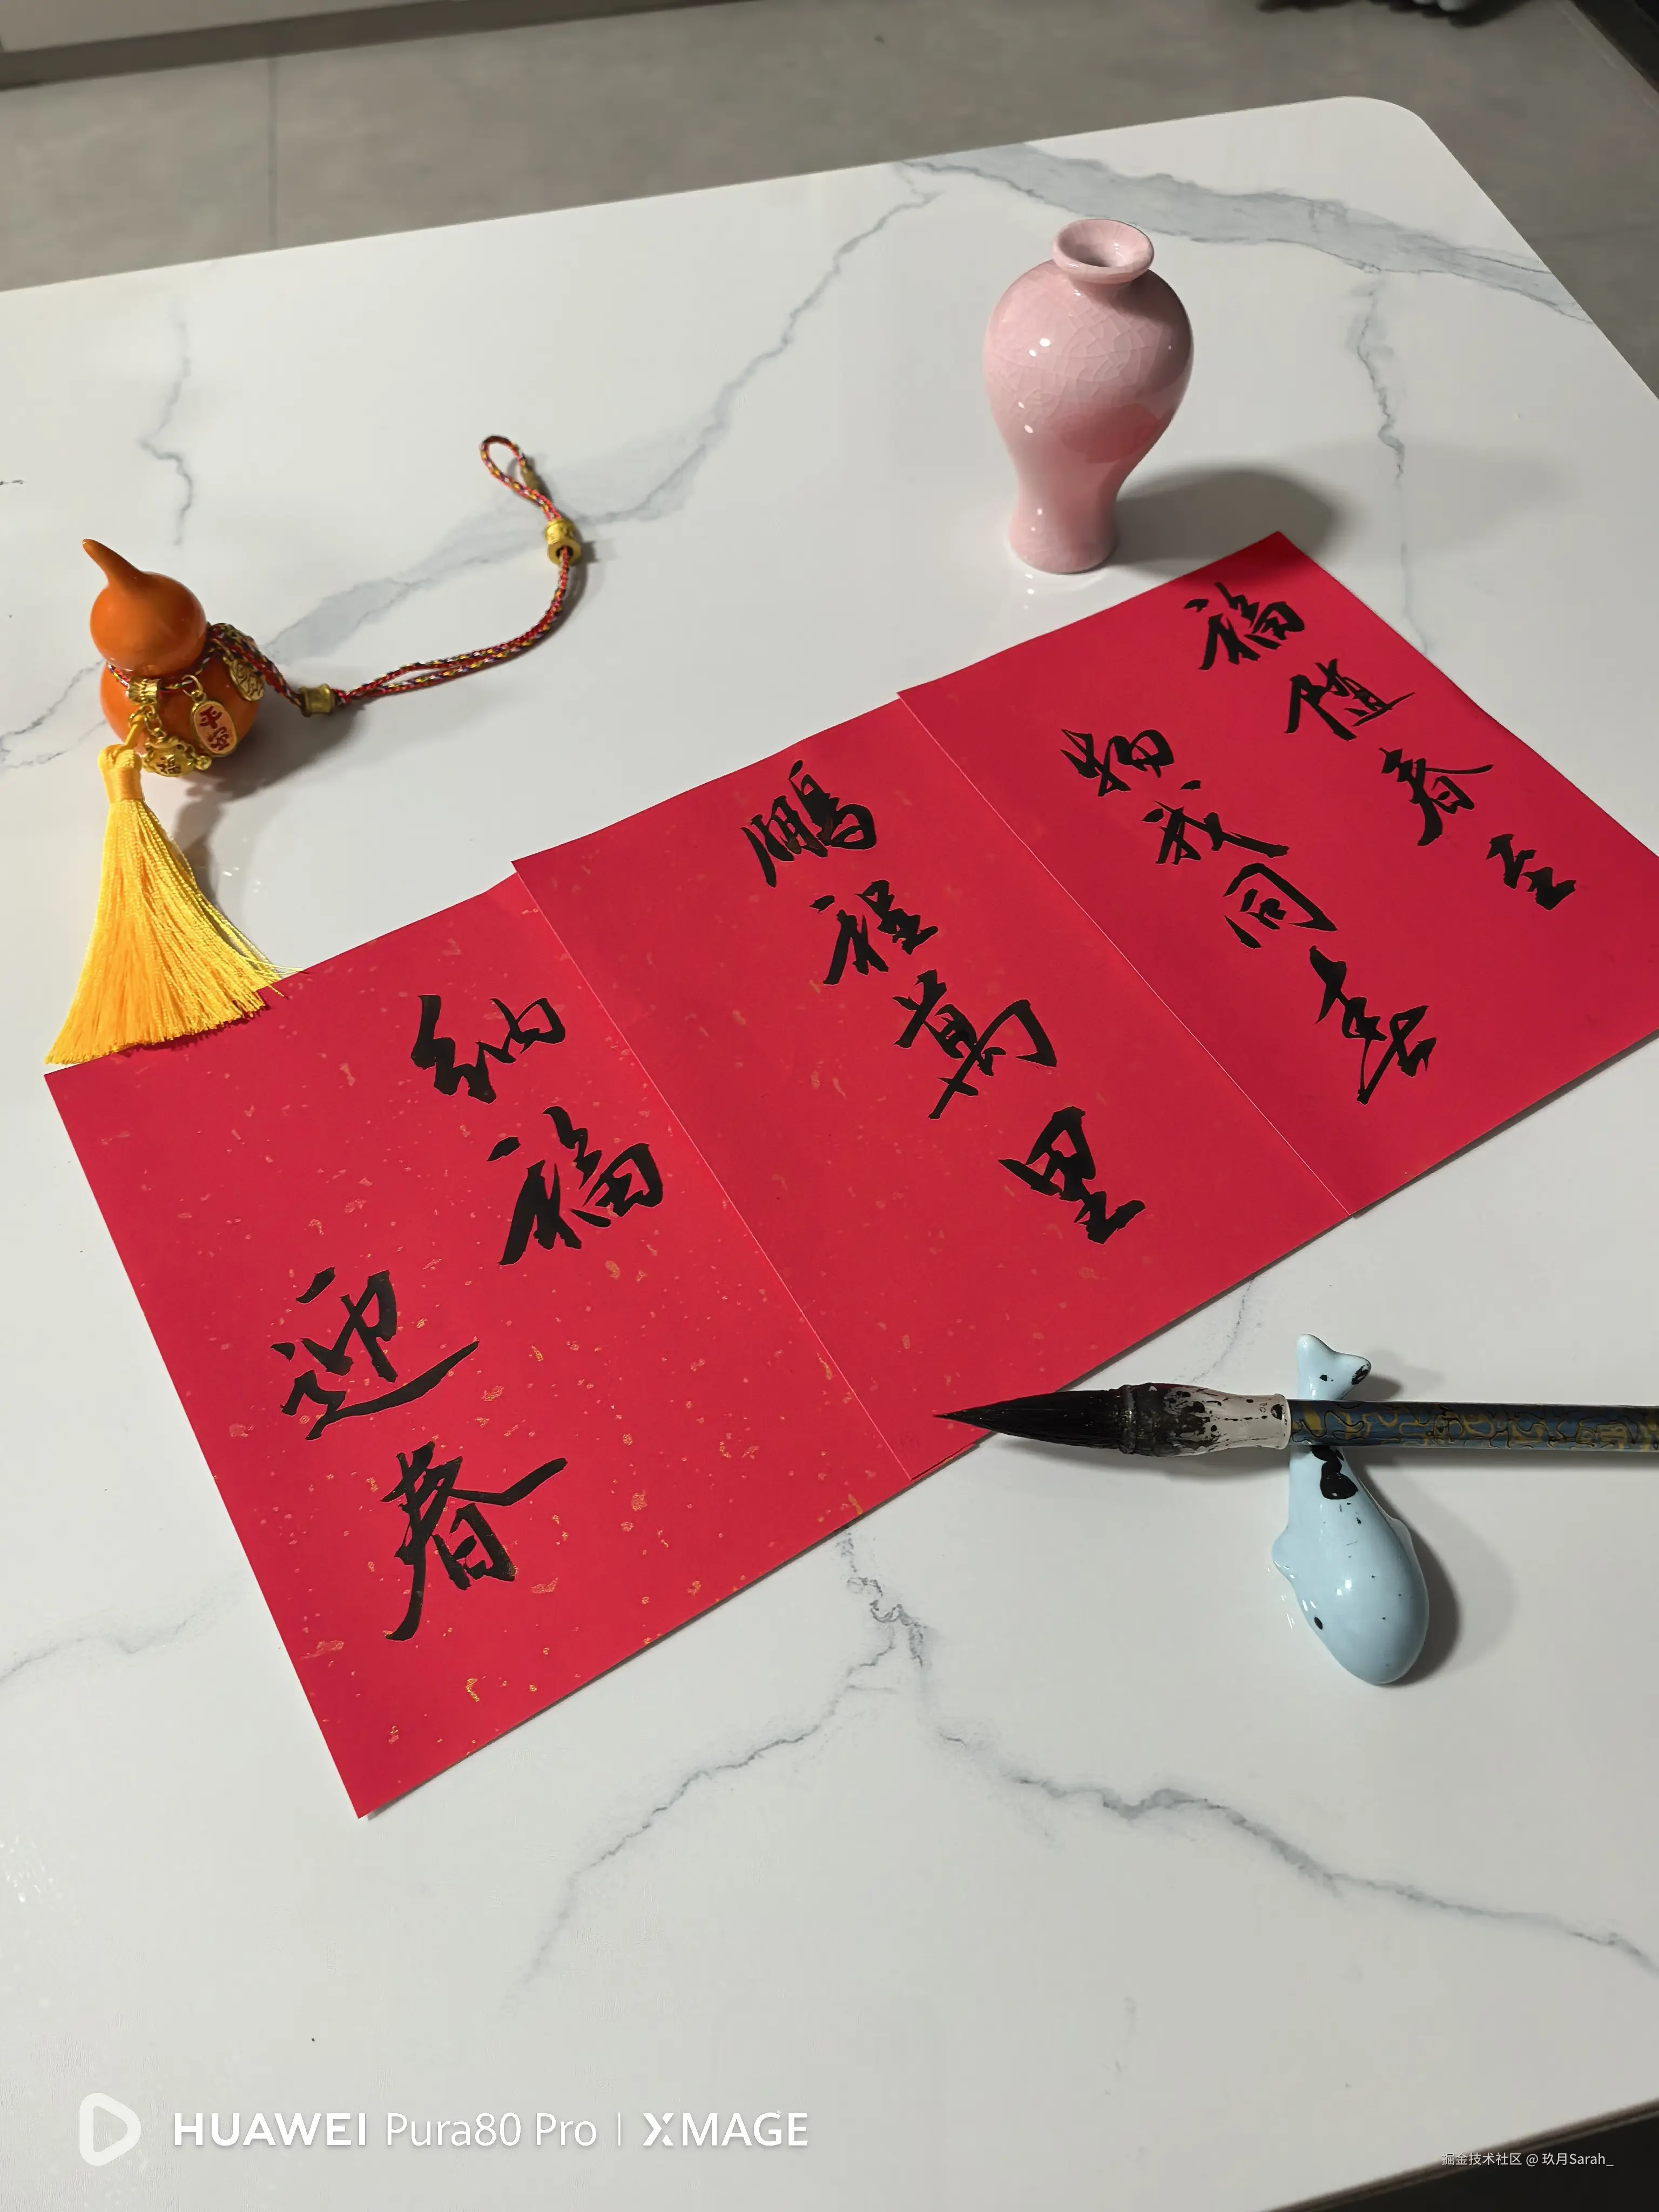 福随春至
物我同
鵬程萬里
纳福
迎春
平安
HUAWEI Pura80 Pro | XMAGE
掘金技术社区 @ 玖月Sarah_